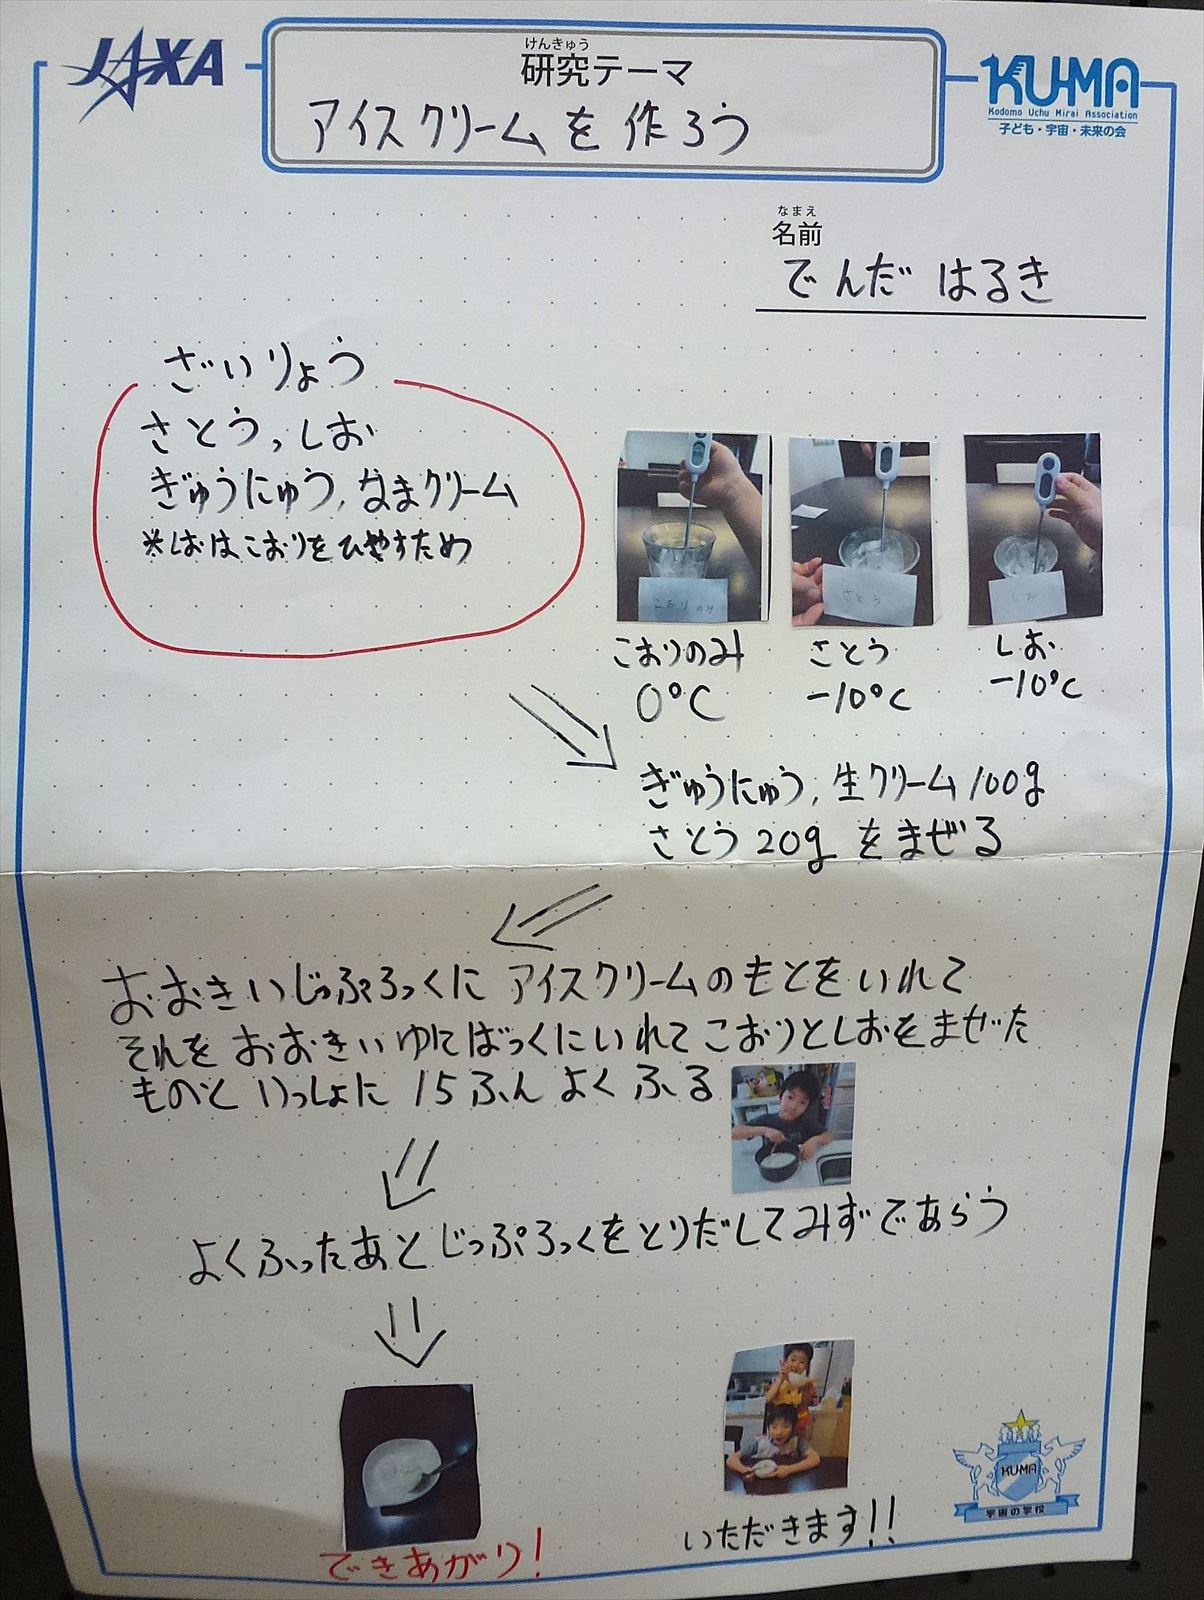 JAXA
けんきゅう
研究テーマ
アイスクリームを作ろう
KU-MA
Kodomo Uchu Mirai Association
子ども・宇宙・未来の会
なまえ
名前
でんだ はるき
ざいりょう
さとう,しお
ぎゅうにゅう,なまクリーム
*しおはこおりをひやすため
こおりのみ
さとう
しお
こおりのみ
0℃
さとう
-10℃
しお
-10℃
ぎゅうにゅう,生クリーム100g
さとう20gをまぜる
おおきいじっぷろっくにアイスクリームのもとをいれて
それをおおきいゆにばっくにいれてこおりとしおをまぜた
ものといっしょに15ふんよくふる
よくふったあとじっぷろっくをとりだしてみずであらう
できあがり!
いただきます!!
KU-MA
宇宙の学校